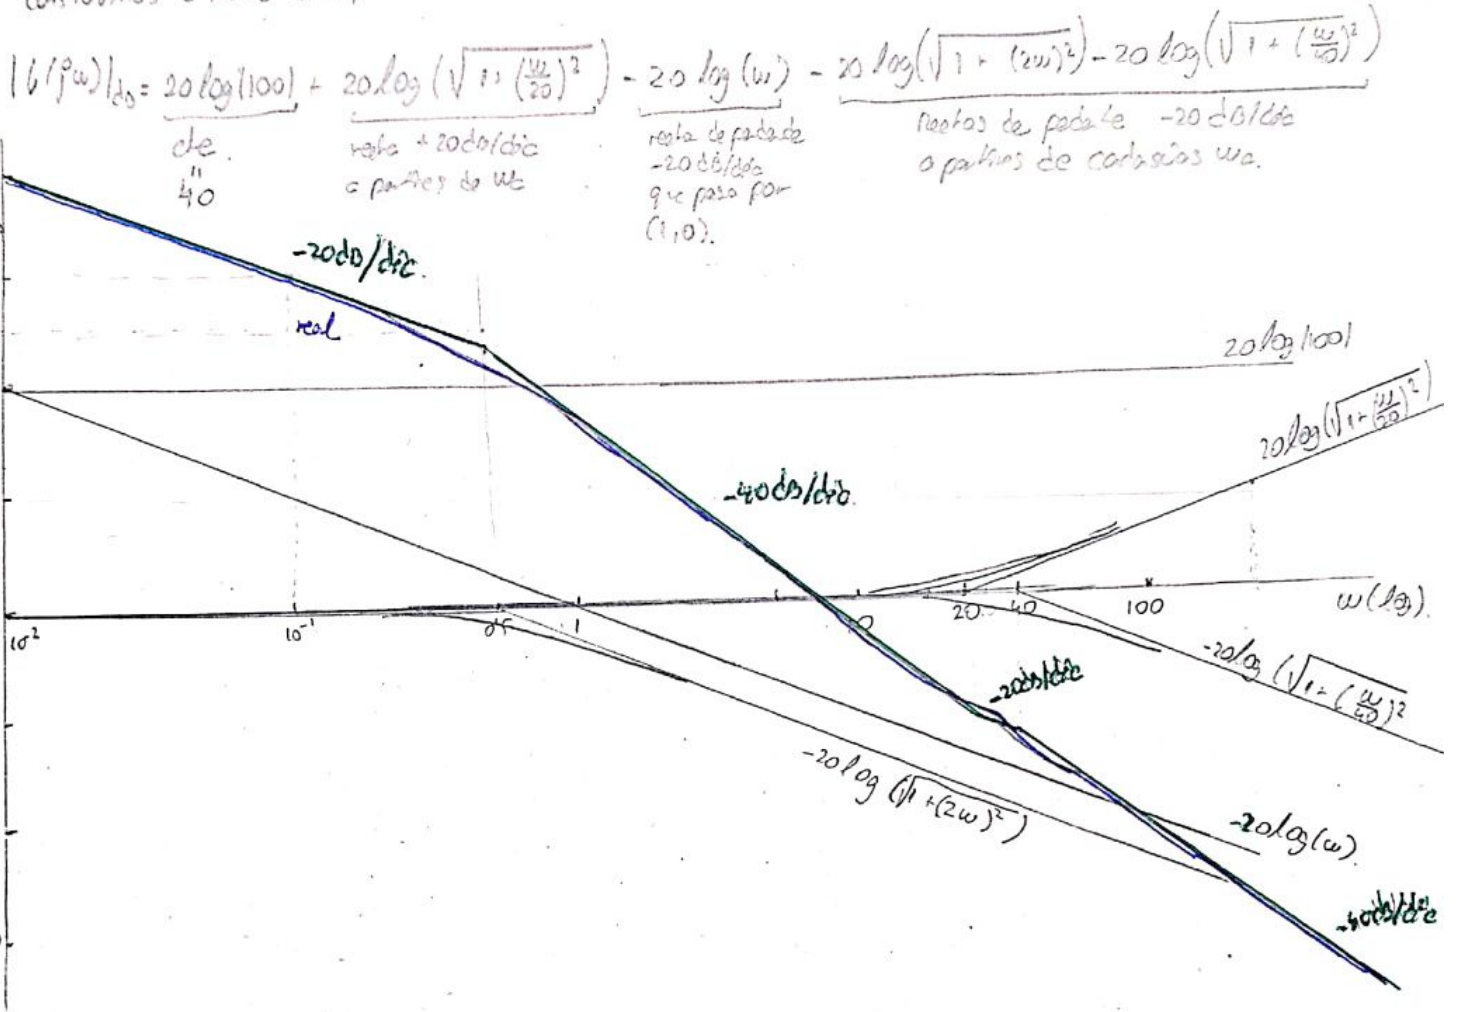 |G(jω)|dB = 20 log|100| + 20 log(√(1+(ω/20)²)) - 20 log(ω) - 20 log(√(1+(2ω)²)) - 20 log(√(1+(ω/40)²))
cte.
"
40
recta +20dB/déc
a partir de ωc
recta de pendiente
-20dB/déc
que pasa por
(1,0).
Rectas de pendiente -20 dB/déc
a partir de cada ωc.
-20dB/déc.
real
20 log|100|
20 log(√(1+(ω/20)²))
-40dB/déc.
10⁻²
10⁻¹
0'5
1
10
20
40
100
ω(log).
-20dB/déc
-20log(√(1+(ω/40)²
-20log(√(1+(2ω)²)
-20log(ω).
-40dB/déc